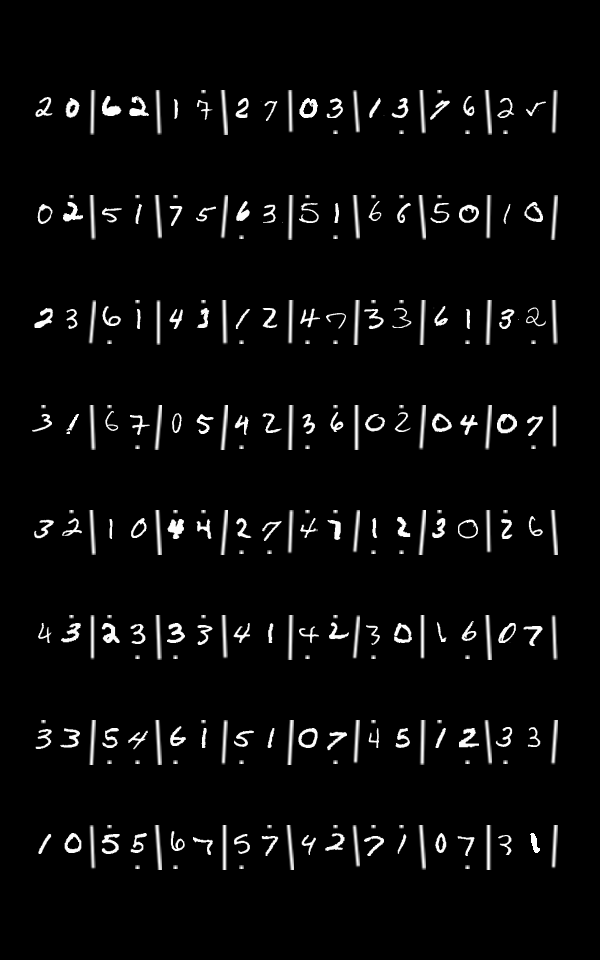 2 0 | 6 2 | 1 7̇ | 2 7 | 0 3̣ | 1 3̣ | 7̇ 6̣ | 2̣ |
0 2̇ | 5 1̇ | 7̇ 5 | 6̣ 3 | 5̇ 1̣ | 6̇ 6̇ | 5̇ 0 | 1 0 |
2 3 | 6̣ 1̇ | 4 3̇ | 1̣ 2 | 4̣ 7̣ | 3̇ 3̇ | 6 1̣ | 3 2̣ |
3̇ 1 | 6̇ 7̣ | 0 5 | 4̣ 2 | 3̣ 6 | 0 2̇ | 0 4 | 0 7̣ |
3 2̇ | 1 0 | 4̇ 4̇ | 2̣ 7̣ | 4̇ 7̇ | 1̣ 2̣ | 3̇ 0 | 2̇ 6 |
4 3̇ | 2̇ 3̣ | 3̣ 3̇ | 4 1 | 4 2̇ | 3̣ 0 | 1 6̣ | 0 7 |
3̇ 3 | 5̣ 4̣ | 6 1̇ | 5̣ 1 | 0 7̣ | 4̇ 5 | 1̇ 2̣ | 3̣ 3 |
1 0 | 5 5̣ | 6̣ 7 | 5̣ 7̇ | 4 2̇ | 7̇ 1̇ | 0 7̣ | 3 1 |